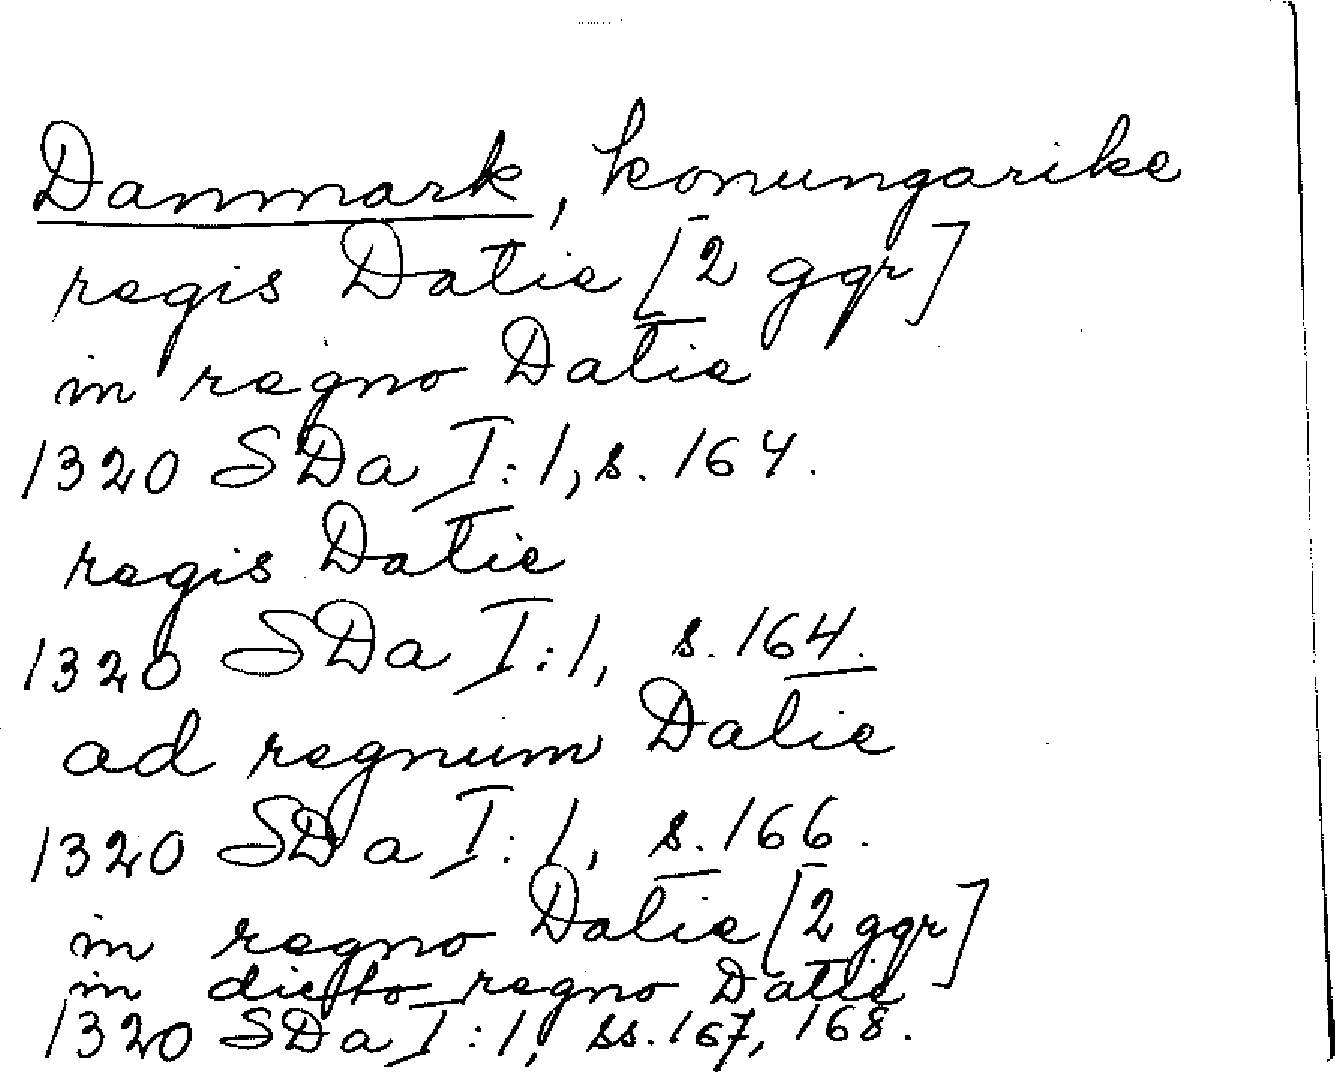 Danmark, konungarike
regis Datie [2 ggr]
in regno Datie
1320 SDa I:1, s. 164.
regis Datie
1320 SDa I:1, s. 164.
ad regnum Datie
1320 SDa I:1, s. 166.
in regno Datie [2 ggr]
in dicto regno Datie
1320 SDa I:1, ss. 167, 168.